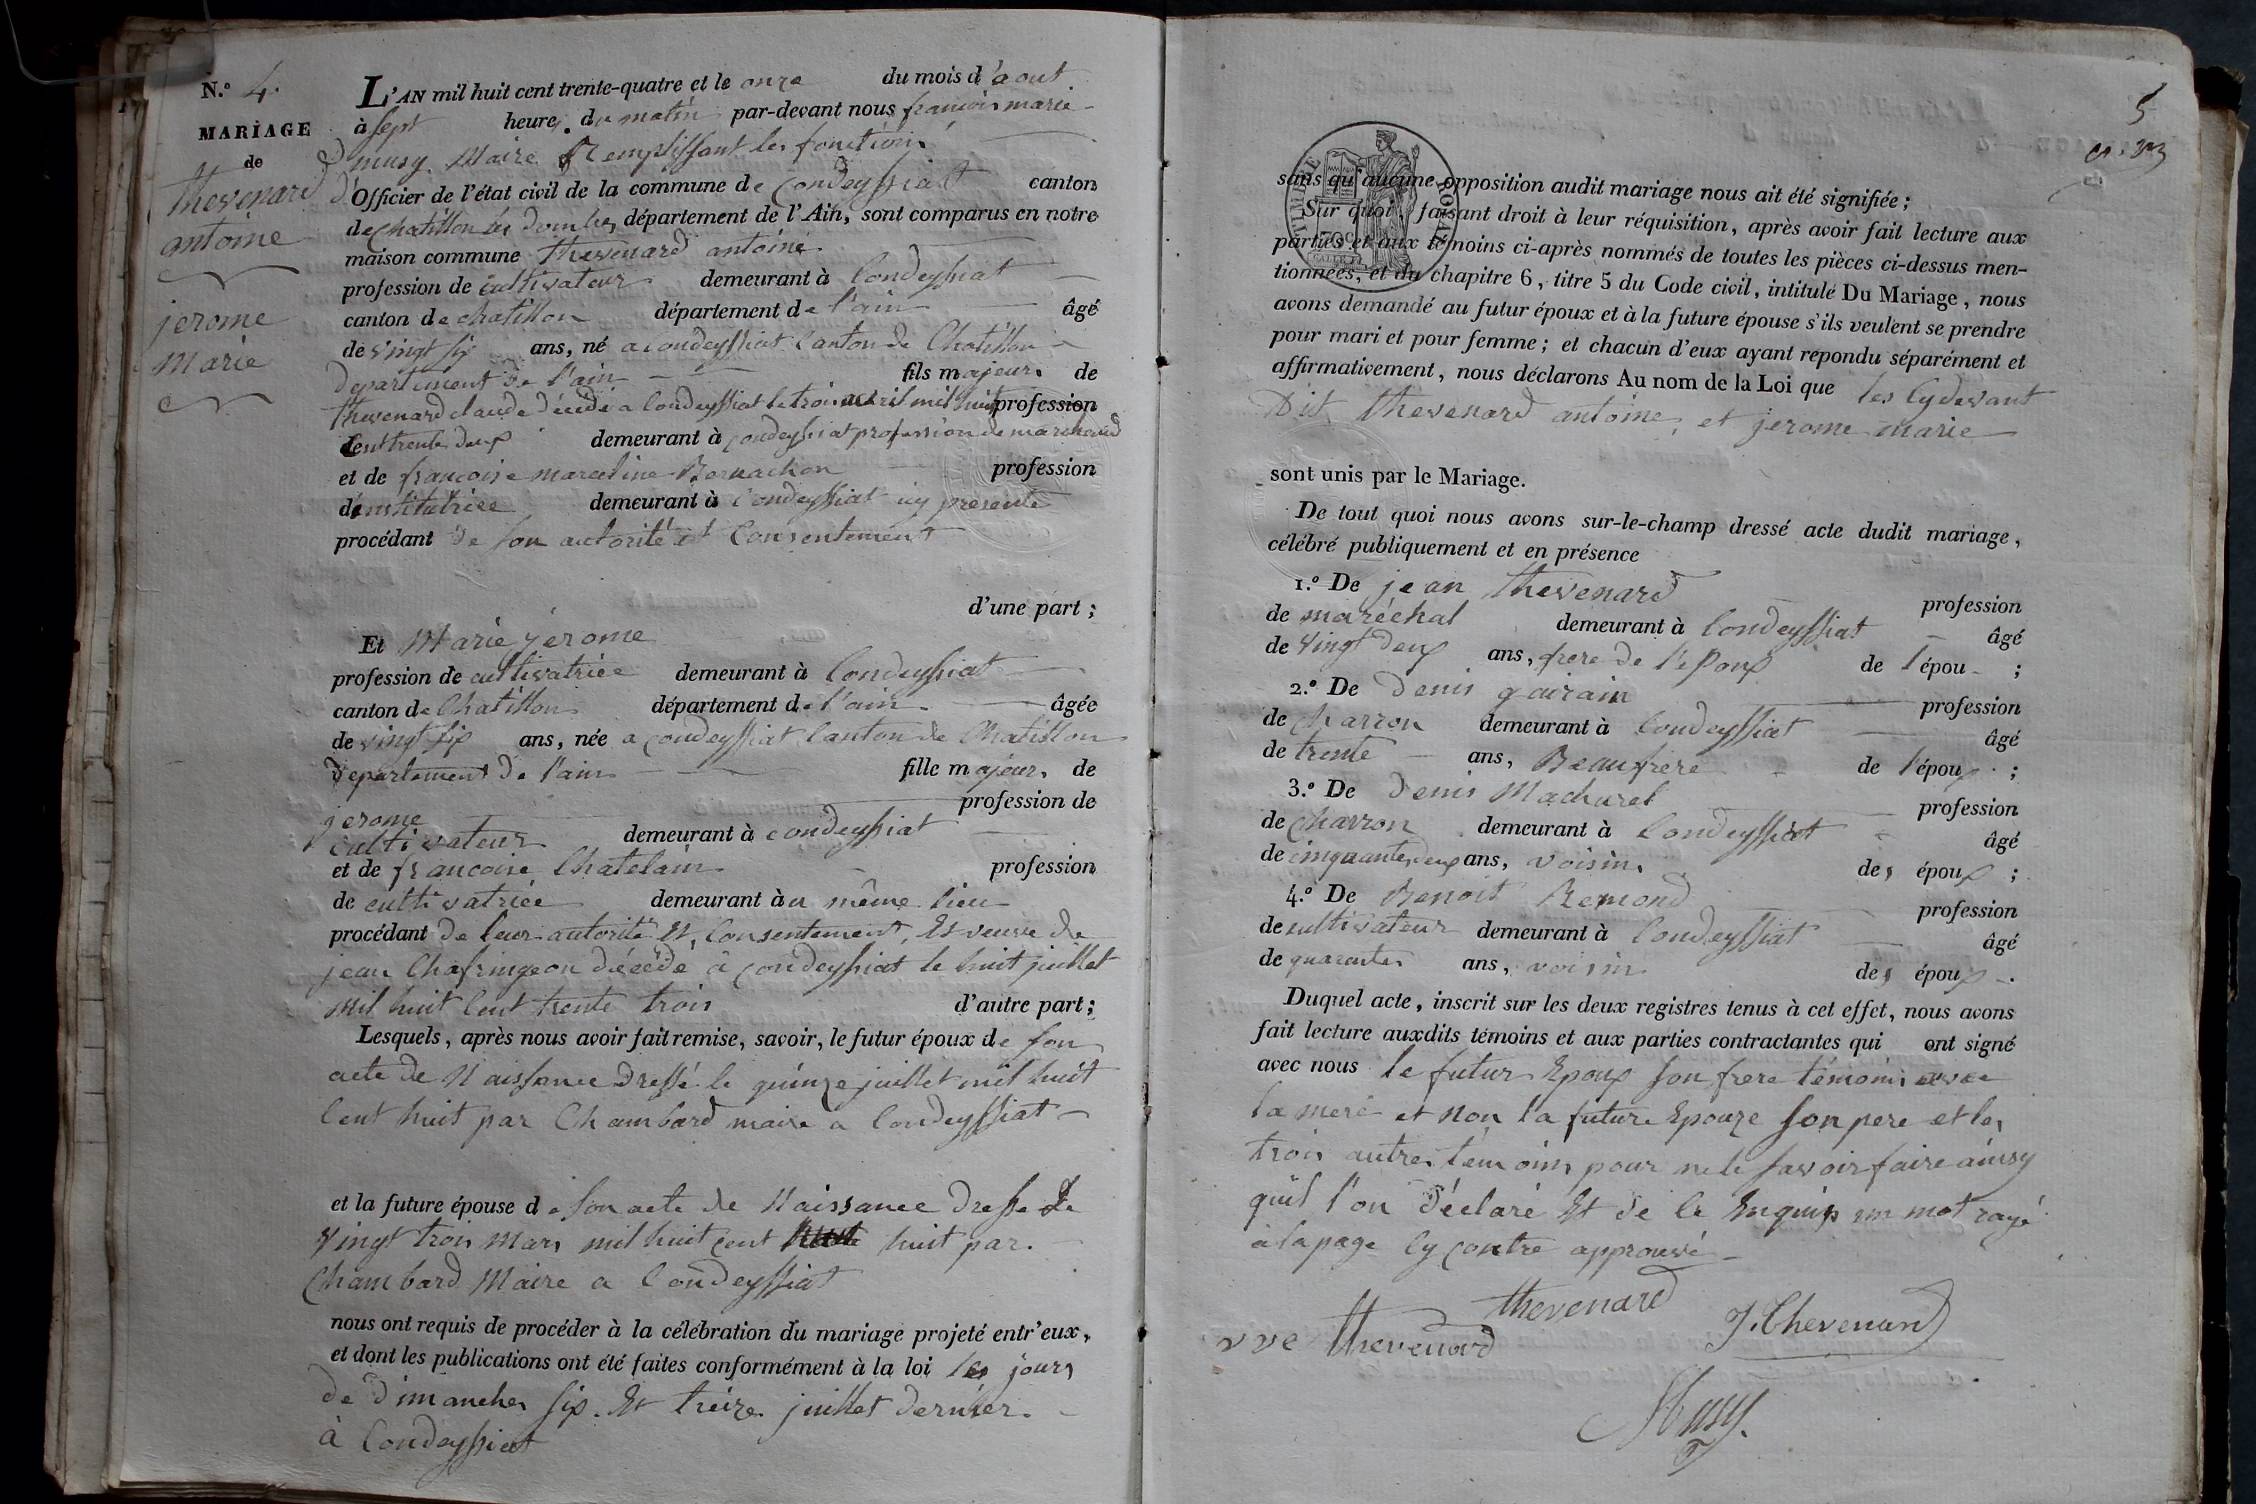 N.º 4.
MARIAGE
de
thevenard
antoine
jerome
Marie
L'AN mil huit cent trente-quatre et le onze du mois d'aout
à sept heures du matin par-devant nous francois marie
musy Maire Remplissant les fonctions
d'Officier de l'état civil de la commune de Condeyssiat canton
de chatillon les dombes, département de l'Ain, sont comparus en notre
maison commune thevenard antoine
profession de cultivateur demeurant à Condeyssiat
canton de chatillon département de l'ain âgé
de vingt six ans, né a condeyssiat Canton de Chatillon
departement de l'ain fils majeur de
thevenard claude décédé a Condeyssiat le trois avril mil huit profession
Cent trente deux demeurant à condeyssiat profession de marchand
et de francoise marceline Bernachon profession
d'institutrice demeurant à Condeyssiat icy presente
procédant de son autorité et Consentement
d'une part ;
Et Marie jerome
profession de cultivatrice demeurant à Condeyssiat
canton de Chatillon département de l'ain âgée
de vingt six ans, née a condeyssiat Canton de Chatillon
departement de l'ain fille majeur de
jerome profession de
cultivateur demeurant à condeyssiat
et de francoise Chatelain profession
de cultivatrice demeurant au même lieu
procédant de leur autorité Et Consentement, Et veuve de
jean Chafringeon décédé à condeyssiat le huit juillet
mil huit Cent trente trois d'autre part ;
Lesquels, après nous avoir fait remise, savoir, le futur époux de son
acte de Naissance Dressé le quinze juillet mil huit
Cent huit par Chambard maire a Condeyssiat
et la future épouse de son acte de Naissance Dresse Le
Vingt trois Mars mil huit cent huit par
Chambard Maire a Condeyssiat
nous ont requis de procéder à la célébration du mariage projeté entr'eux,
et dont les publications ont été faites conformément à la loi les jours
de dimanches six Et treize juillet dernier
à Condeyssiat
5
TIMBRE ROYAL
sans qu'aucune opposition audit mariage nous ait été signifiée ;
Sur quoi, faisant droit à leur réquisition, après avoir fait lecture aux
parties et aux témoins ci-après nommés de toutes les pièces ci-dessus men-
tionnées, et du chapitre 6, titre 5 du Code civil, intitulé Du Mariage, nous
avons demandé au futur époux et à la future épouse s'ils veulent se prendre
pour mari et pour femme ; et chacun d'eux ayant répondu séparément et
affirmativement, nous déclarons Au nom de la Loi que les Cydevant
Dit thevenard antoine et jerome marie
sont unis par le Mariage.
De tout quoi nous avons sur-le-champ dressé acte dudit mariage,
célébré publiquement et en présence
1.º De jean thevenard profession
de maréchal demeurant à Condeyssiat âgé
de Vingt deux ans, frere de l'epoux de l'épou ;
2.º De Denis gairain profession
de charron demeurant à Condeyssiat âgé
de trente ans, Beaufrere de l'époux ;
3.º De Denis Machurel profession
de Charron demeurant à Condeyssiat âgé
de cinquantedeux ans, voisin des époux ;
4.º De Benoit Remond profession
de cultivateur demeurant à Condeyssiat âgé
de quarante ans, voisin des époux.
Duquel acte, inscrit sur les deux registres tenus à cet effet, nous avons
fait lecture auxdits témoins et aux parties contractantes qui ont signé
avec nous le futur Epoux son frere témoin avec
la mere et non la future Epouze son pere et les
trois autres témoins pour ne le savoir faire ainsy
quil l'on déclaré Et de ce Enquis un mot rayé
à la page cy contre approuvé
thevenard J. Thevenard
vve thevenard
Musy